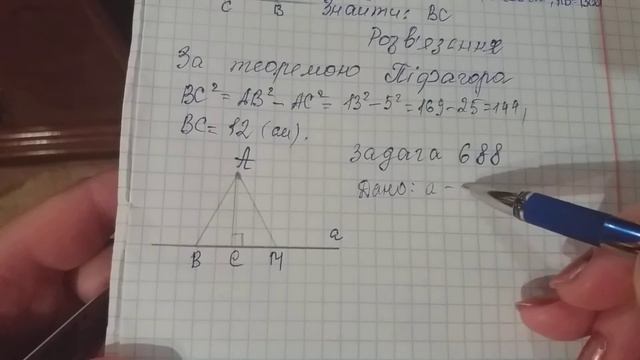 C B Знайти: BC
Розв'язання
За теоремою Піфагора
BC² = AB² - AC² = 13² - 5² = 169 - 25 = 144,
BC = 12 (см).
Задача 688
Дано: a -
A
a
B C M